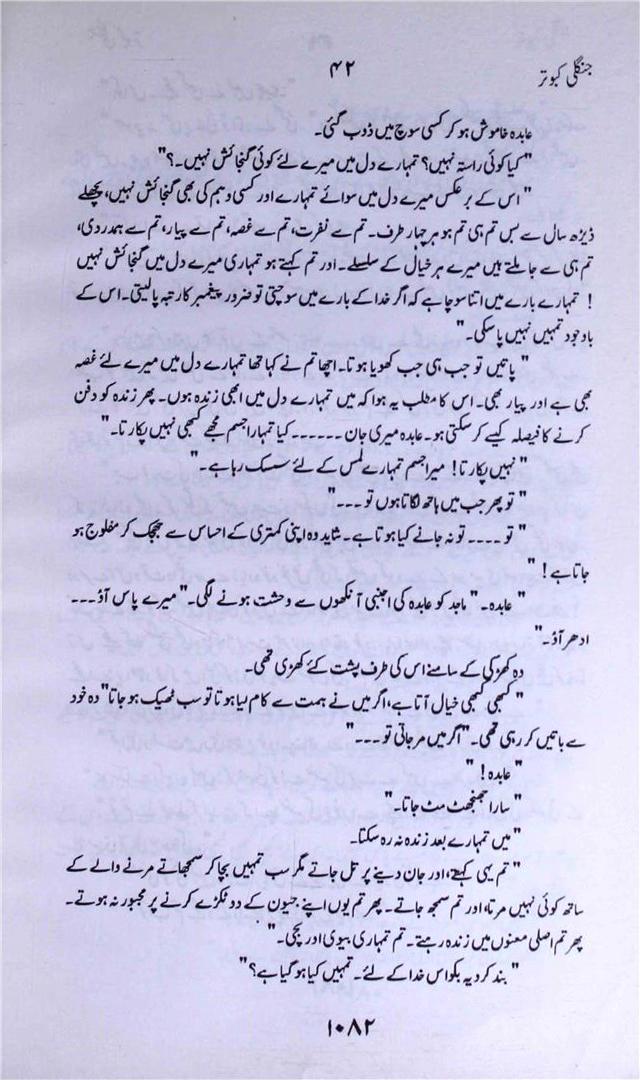 جنگلی کبوتر
۴۲
عابدہ خاموش ہو کر کسی سوچ میں ڈوب گئی۔
"کیا کوئی راستہ نہیں؟ تمہارے دل میں میرے لئے کوئی گنجائش نہیں۔؟"
"اس کے برعکس میرے دل میں سوائے تمہارے اور کسی وہم کی بھی گنجائش نہیں، پچھلے
ڈیڑھ سال سے بس تم ہی تم ہو ہر چہار طرف۔ تم سے نفرت، تم سے غصہ، تم سے پیار، تم سے ہمدردی،
تم ہی سے جا ملتے ہیں میرے ہر خیال کے سلسلے۔ اور تم کہتے ہو تمہاری میرے دل میں گنجائش نہیں
! تمہارے بارے میں اتنا سوچا ہے کہ اگر خدا کے بارے میں سوچتی تو ضرور پیغمبر کا رتبہ پا لیتی۔ اس کے
باوجود تمہیں نہیں پا سکی۔"
"پاتیں تو جب ہی جب کھویا ہوتا۔ اچھا تم نے کہا تھا تمہارے دل میں میرے لئے غصہ
بھی ہے اور پیار بھی۔ اس کا مطلب یہ ہوا کہ میں تمہارے دل میں ابھی زندہ ہوں۔ پھر زندہ کو دفن
کرنے کا فیصلہ کیسے کر سکتی ہو۔ عابدہ میری جان ۔۔۔۔۔۔ کیا تمہارا جسم مجھے کبھی نہیں پکارتا۔"
"نہیں پکارتا! میرا جسم تمہارے لمس کے لئے سسک رہا ہے۔"
"تو پھر جب میں ہاتھ لگاتا ہوں تو۔۔۔"
"تو ۔۔۔۔ تو نہ جانے کیا ہوتا ہے۔ شاید وہ اپنی کمتری کے احساس سے جھجک کر مفلوج ہو
جاتا ہے!"
"عابدہ۔" ماجد کو عابدہ کی اجنبی آنکھوں سے وحشت ہونے لگی۔ "میرے پاس آؤ۔۔۔
ادھر آؤ۔"
وہ کھڑکی کے سامنے اس کی طرف پشت کئے کھڑی تھی۔
"کبھی کبھی خیال آتا ہے، اگر میں نے ہمت سے کام لیا ہوتا تو سب ٹھیک ہو جاتا" وہ خود
سے باتیں کر رہی تھی۔ "اگر میں مر جاتی تو۔۔۔"
"عابدہ!"
"سارا جھنجھٹ مٹ جاتا۔"
"میں تمہارے بعد زندہ نہ رہ سکتا۔
"تم یہی کہتے، اور جان دینے پر تل جاتے مگر سب تمہیں بچا کر سمجھاتے مرنے والے کے
ساتھ کوئی نہیں مرتا، اور تم سمجھ جاتے۔ پھر تم یوں اپنے جیون کے دو ٹکڑے کرنے پر مجبور نہ ہوتے۔
پھر تم اصلی معنوں میں زندہ رہتے۔ تم تمہاری بیوی اور بچی۔"
"بند کر دیہ بکواس خدا کے لئے۔ تمہیں کیا ہو گیا ہے؟"
۱۰۸۲